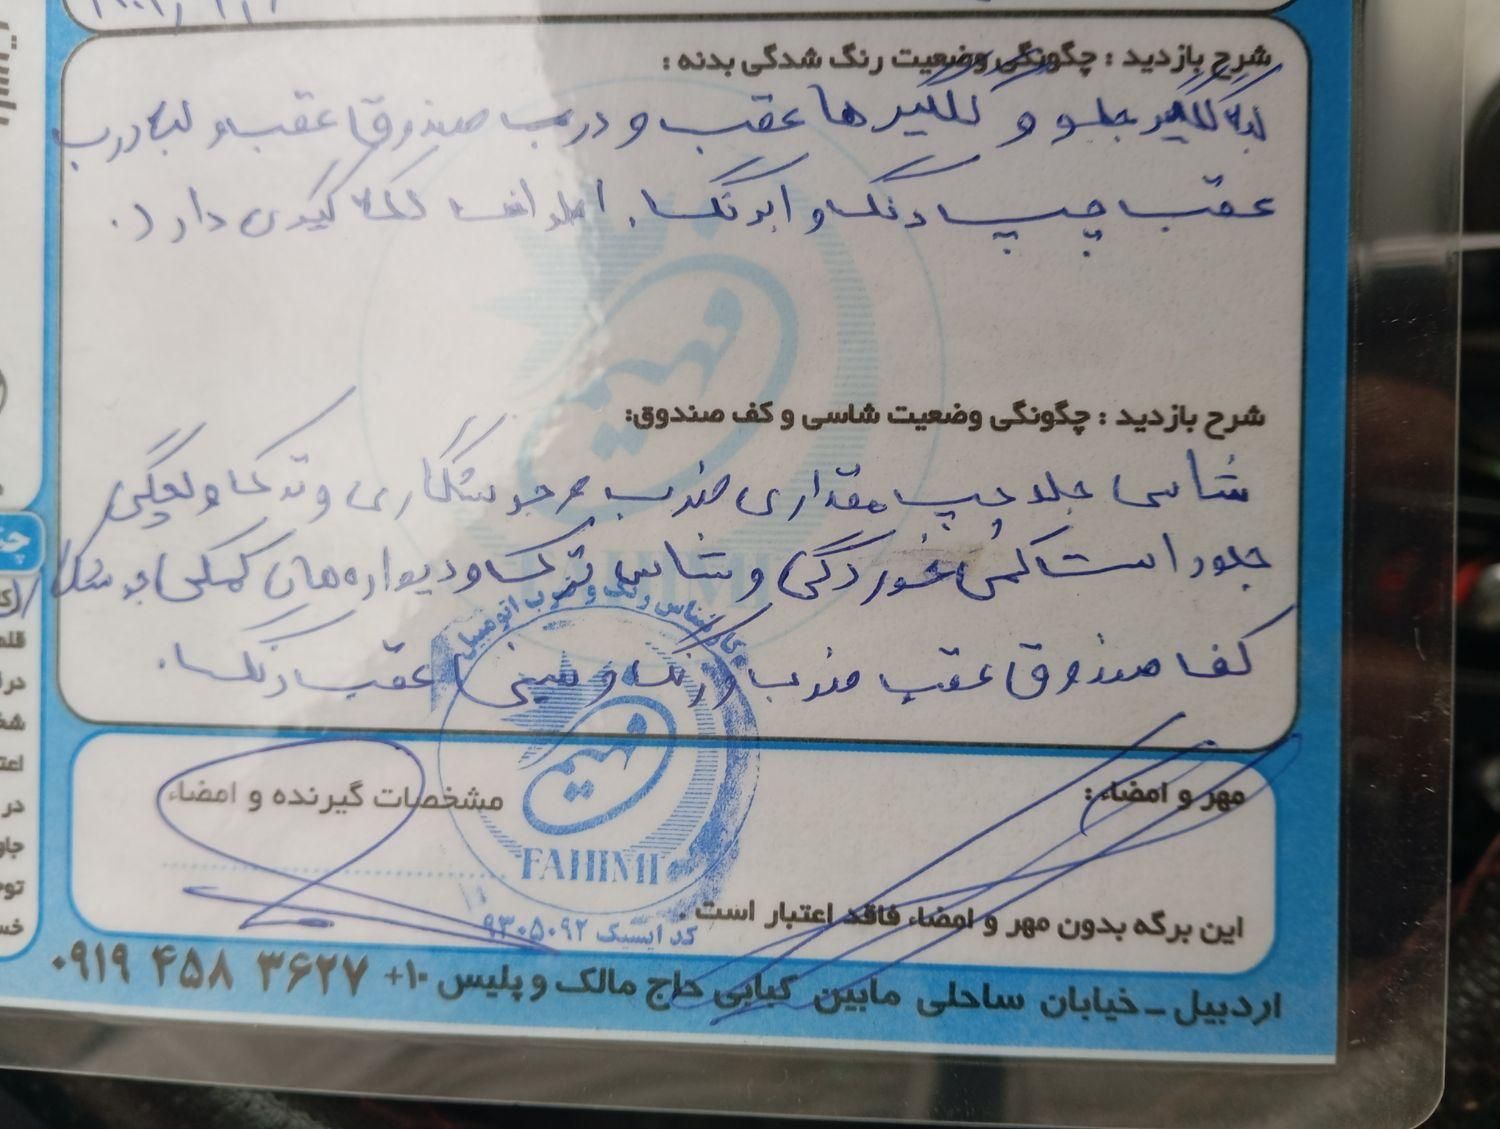 شرح بازدید : چگونگی وضعیت رنگ شدگی بدنه :
لبه گلگیر جلو و گلگیر ها عقب و درب صندوق عقب و لبه درب
عقب چپ رنگ و ابرنگ. اطراف لکه گیری دارد.
شرح بازدید : چگونگی وضعیت شاسی و کف صندوق:
شاسی جلو چپ مقداری ضرب جوشکاری و ترک و
جلو راست کمی خوردگی و شاسی ترک و دیواره های کمکی
کف صندوق عقب ضرب و رنگ و سینی عقب رنگ.
کارشناس رنگ و ضرب اتومبیل
فهیمی
FAHIMI
کد ایسیک ۹۳۰۵۰۹۲
مهر و امضاء :
مشخصات گیرنده و امضاء
این برگه بدون مهر و امضاء فاقد اعتبار است .
اردبیل - خیابان ساحلی مابین کبابی حاج مالک و پلیس +۱۰ ۰۹۱۹ ۴۵۸ ۳۶۲۷